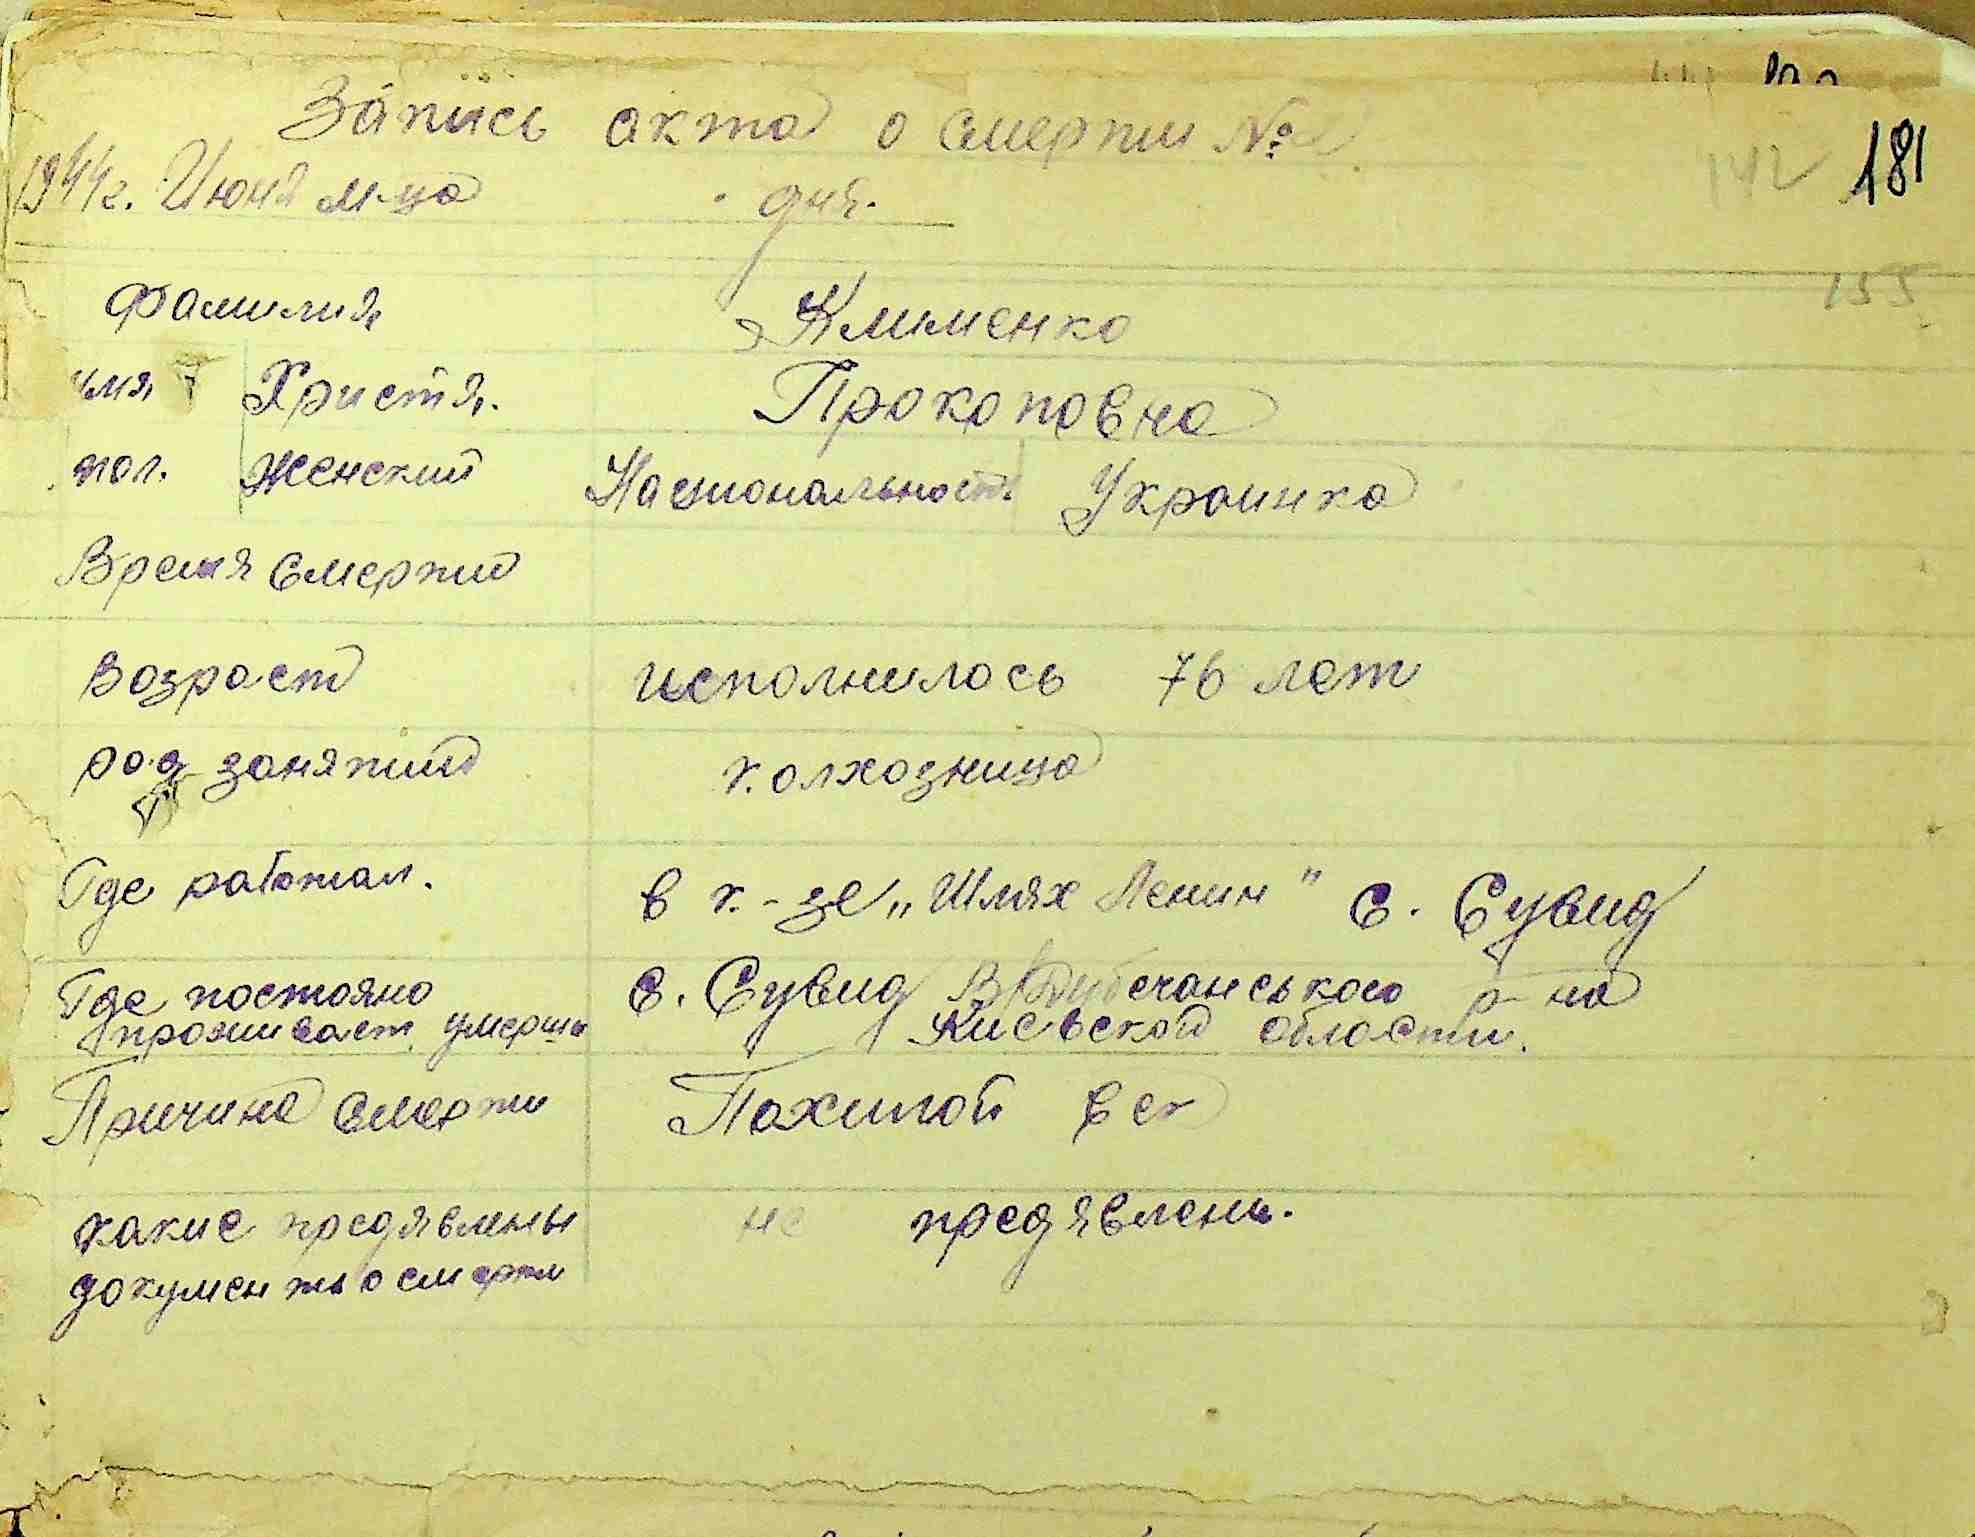 Запись акта о смерти №
142 181
1944 г. Июня м-ца дня.
155
Фамилия Клименко
имя Христя. Прокоповна
пол. женский Национальность Украинка
Время смерти
возраст исполнилось 76 лет
род занятий колхозница
Где работал. в к.-зе „Шлях Ленин" с. Сувид
Где постояно с. Сувид В/Дубечанського р-на
проживает умерш Киевской области.
Причина смерти Пожилой век
какие предявлены не предявлены.
документы о смерти